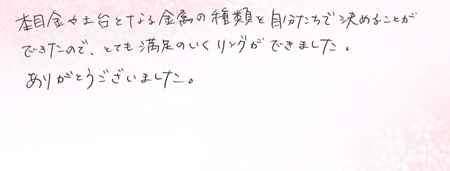 杢目金や土台となる金属の種類を自分たちで決めることが
できたので、とても満足のいくリングができました。
ありがとうございました。